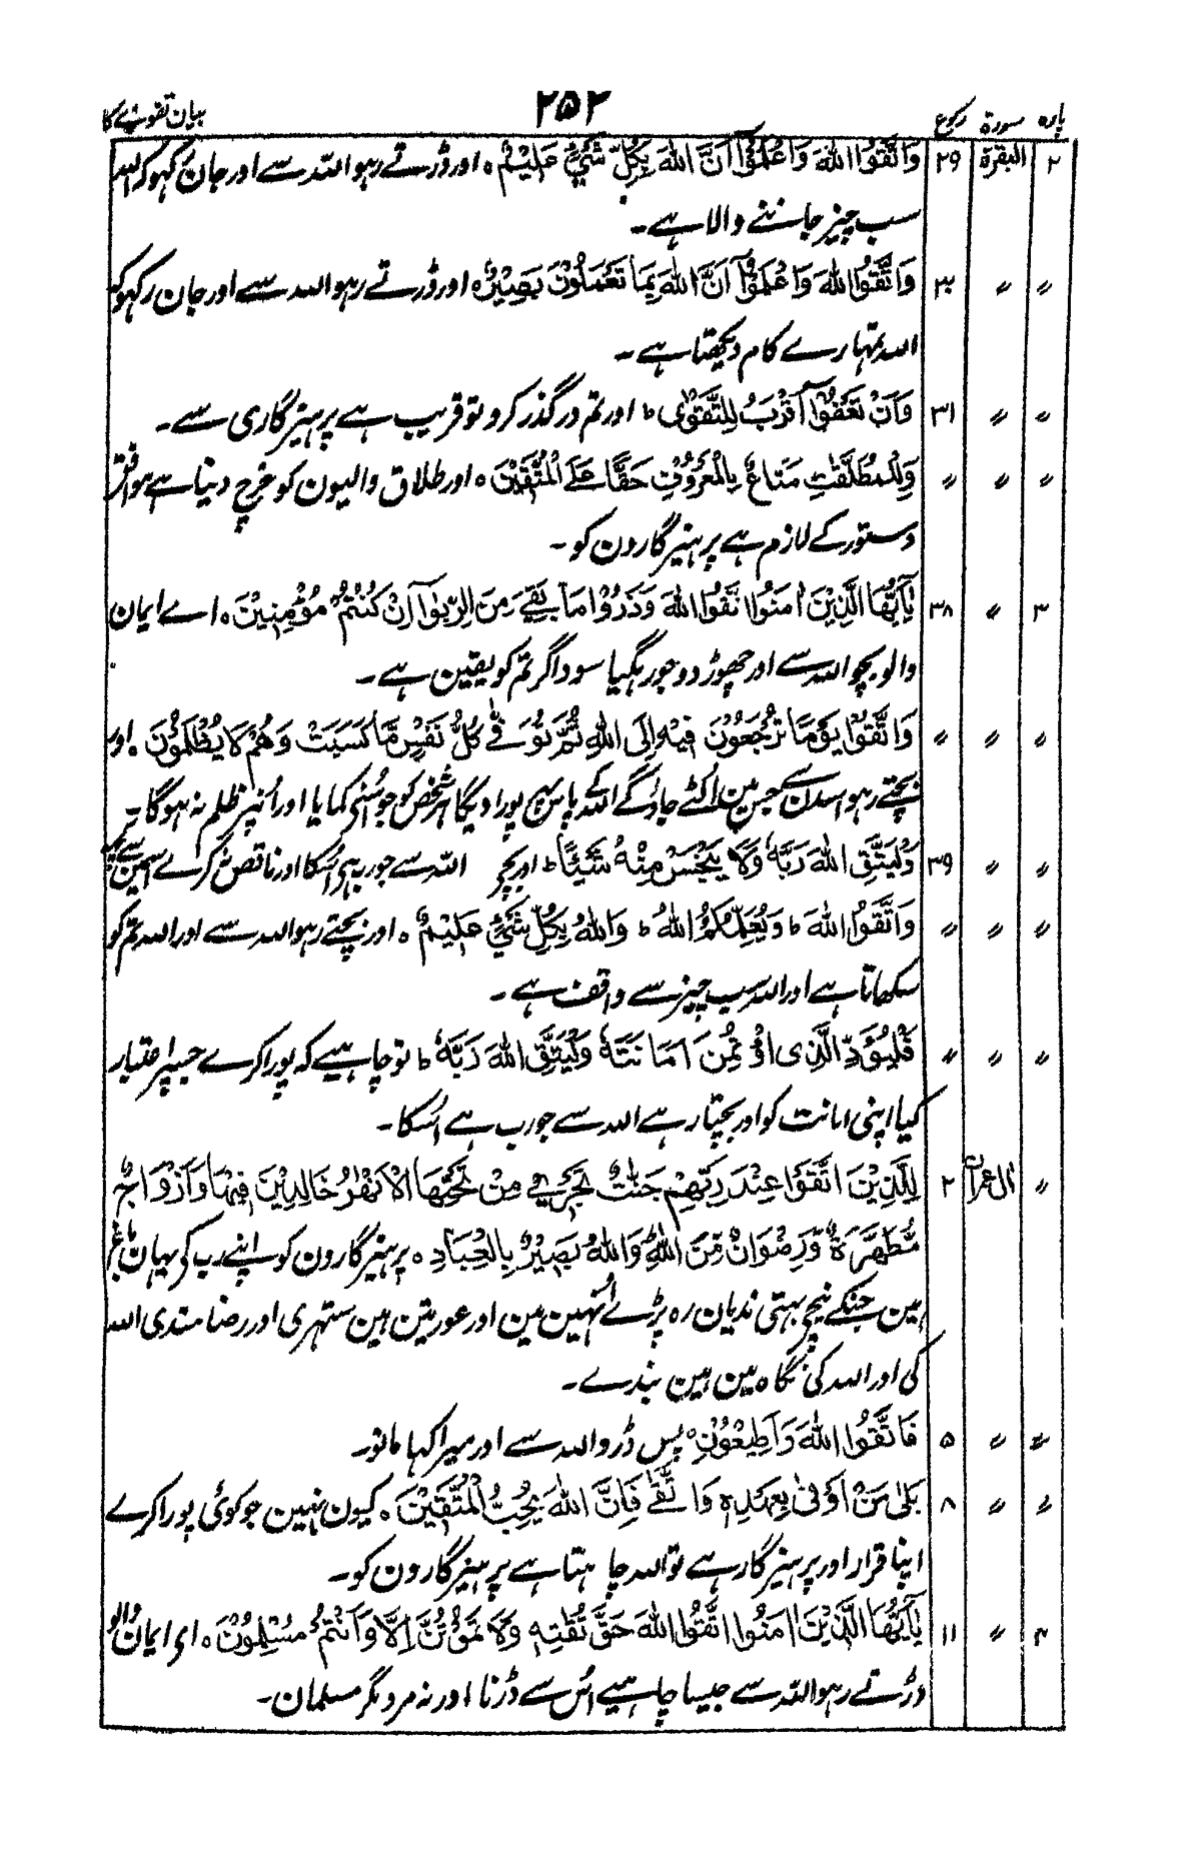 پارہ سورۃ رکوع ۲۵۲ بیان تقوے کا
۲ البقرۃ ۲۹ وَاتَّقُوا اللهَ وَاعْلَمُوْٓا اَنَّ اللهَ بِكُلِّ شَيْءٍ عَلِيْمٌ ہ اور ڈرتے رہو اللہ سے اور جان رکہو کہ اللہ
سب چیز جاننے والا ہے۔
〃 〃 ۳۰ وَاتَّقُوا اللهَ وَاعْلَمُوْٓا اَنَّ اللهَ بِمَا تَعْمَلُوْنَ بَصِيْرٌ ہ اور ڈرتے رہو اللہ سے اور جان رکہو کہ
اللہ تمہارے کام دیکھتا ہے۔
〃 〃 ۳۱ وَاَنْ تَعْفُوْٓا اَقْرَبُ لِلتَّقْوٰى ط اور تم درگذر کرو تو قریب ہے پرہیزگاری سے۔
〃 〃 〃 وَلِلْمُطَلَّقٰتِ مَتَاعٌ بِالْمَعْرُوْفِ حَقًّا عَلَى الْمُتَّقِيْنَ ہ اور طلاق والیون کو خرچ دینا ہے موافق
دستور کے لازم ہے پرہیزگارون کو۔
۳ 〃 ۳۸ يٰٓاَيُّهَا الَّذِيْنَ اٰمَنُوا اتَّقُوا اللهَ وَذَرُوْا مَا بَقِيَ مِنَ الرِّبٰوٓا اِنْ كُنْتُمْ مُّؤْمِنِيْنَ ہ اے ایمان
والو بچو اللہ سے اور چھوڑ دو جو رہگیا سود اگر تم کو یقین ہے۔
〃 〃 〃 وَاتَّقُوْا يَوْمًا تُرْجَعُوْنَ فِيْهِ اِلَى اللهِ ثُمَّ تُوَفّٰى كُلُّ نَفْسٍ مَّا كَسَبَتْ وَهُمْ لَا يُظْلَمُوْنَ ہ اور
بچتے رہو اسدن سے جس مین الٹے جاؤگے اللہ کے پاس پھر پورا دیگا ہر شخص کو جو اُسنے کمایا اور اُنپر ظلم نہ ہوگا۔
〃 〃 ۳۹ وَلْيَتَّقِ اللهَ رَبَّهٗ وَلَا يَبْخَسْ مِنْهُ شَيْئًا ط اور بچے اللہ سے جو رب ہے اُسکا اور ناقص نکرے اسمین سے کچھ
〃 〃 〃 وَاتَّقُوا اللهَ ط وَيُعَلِّمُكُمُ اللهُ ط وَاللهُ بِكُلِّ شَيْءٍ عَلِيْمٌ ہ اور بچتے رہو اللہ سے اور اللہ تم کو
سکھاتا ہے اور اللہ سب چیز سے واقف ہے۔
〃 〃 〃 فَلْيُؤَدِّ الَّذِى اؤْتُمِنَ اَمَانَتَهٗ وَلْيَتَّقِ اللهَ رَبَّهٗ ط تو چاہیے کہ پورا کرے جسپر اعتبار
کیا اپنی امانت کو اور بچتا رہے اللہ سے جو رب ہے اُسکا۔
〃 اٰل عمران ۲ لِلَّذِيْنَ اتَّقَوْا عِنْدَ رَبِّهِمْ جَنّٰتٌ تَجْرِيْ مِنْ تَحْتِهَا الْاَنْهٰرُ خَالِدِيْنَ فِيْهَا وَاَزْوَاجٌ
مُّطَهَّرَةٌ وَّرِضْوَانٌ مِّنَ اللهِ وَاللهُ بَصِيْرٌ بِالْعِبَادِ ہ پرہیزگارون کو اپنے رب کی یہان باغ
ہین جنکے نیچے بہتی ندیان رہ پڑے اُنہین مین اور عورتین ہین ستہری اور رضامندی اللہ
کی اور اللہ کی نگاہ مین ہین بندے۔
〃 〃 ۵ فَاتَّقُوا اللهَ وَاَطِيْعُوْنِ ہ پس ڈرو اللہ سے اور میرا کہا مانو۔
〃 〃 ۸ بَلٰى مَنْ اَوْفٰى بِعَهْدِهٖ وَاتَّقٰى فَاِنَّ اللهَ يُحِبُّ الْمُتَّقِيْنَ ہ کیون نہین جو کوئی پورا کرے
اپنا قرار اور پرہیزگار ہے تو اللہ چاہتا ہے پرہیزگارون کو۔
۴ 〃 ۱۱ يٰٓاَيُّهَا الَّذِيْنَ اٰمَنُوا اتَّقُوا اللهَ حَقَّ تُقٰتِهٖ وَلَا تَمُوْتُنَّ اِلَّا وَاَنْتُمْ مُّسْلِمُوْنَ ہ ای ایمان والو
ڈرتے رہو اللہ سے جیسا چاہیے اُس سے ڈرنا اور نہ مرو مگر مسلمان۔